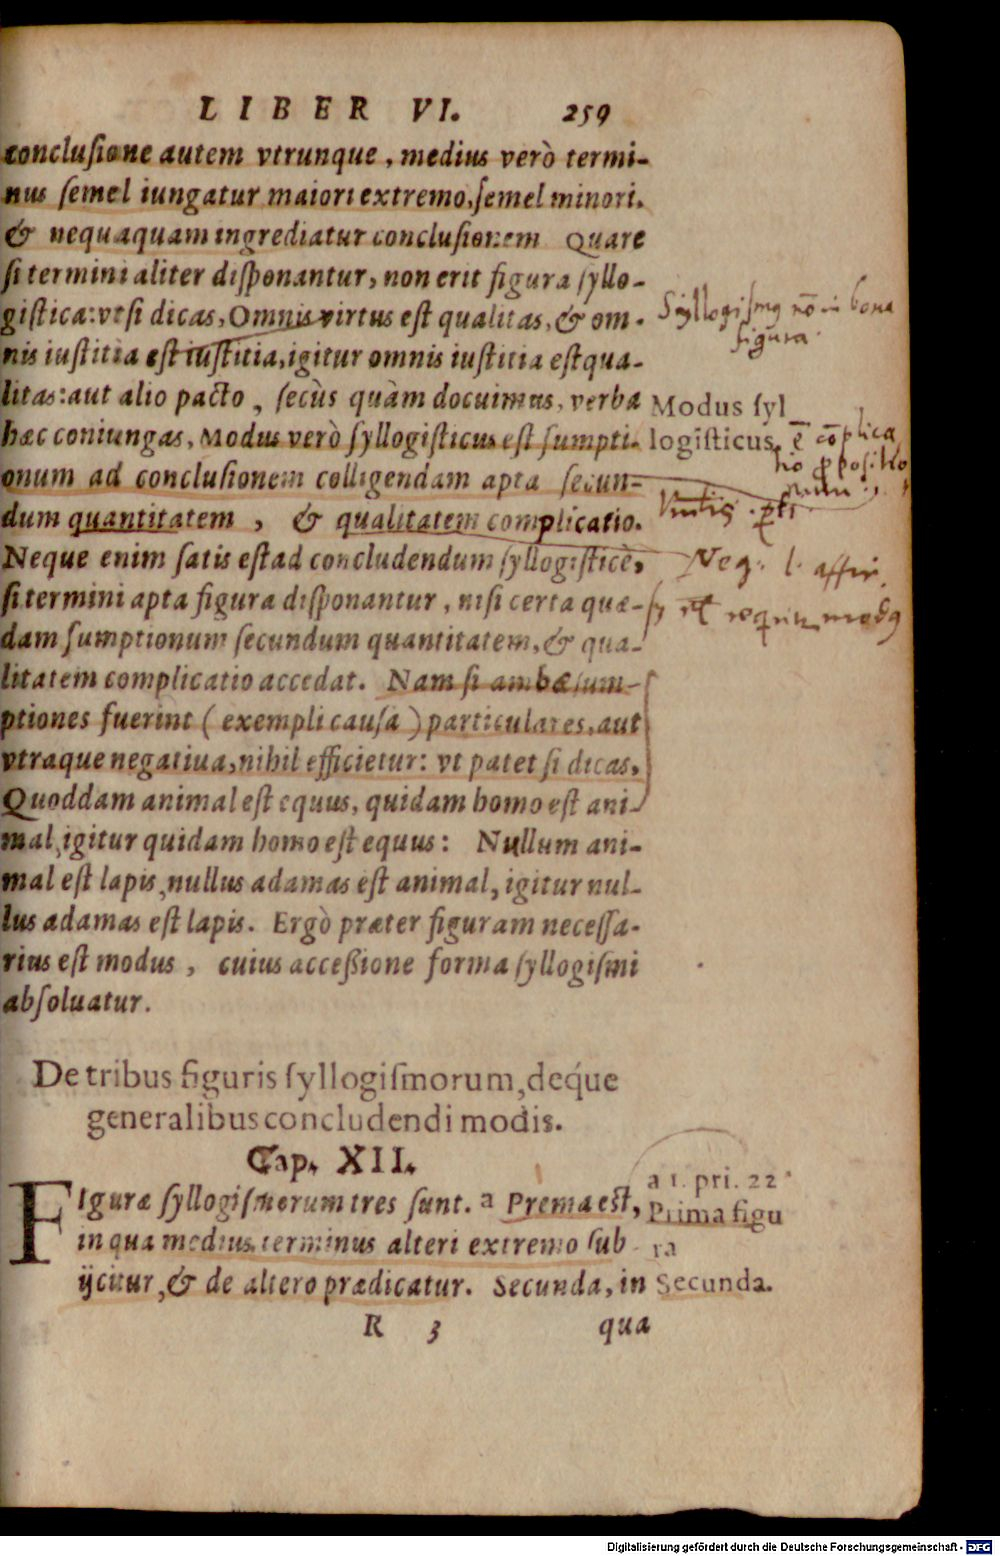 LIBER VI. 259
conclusione autem vtrunque, medius verò termi-
nus semel iungatur maiori extremo, semel minori,
& nequaquam ingrediatur conclusionem Quare
si termini aliter disponantur, non erit figura syllo-
gistica: vt si dicas, Omnis virtus est qualitas, & om-
nis iustitia est iustitia, igitur omnis iustitia est qua-
litas: aut alio pacto, secùs quàm docuimus, verba
hæc coniungas, Modus verò syllogisticus est sumpti-
onum ad conclusionem colligendam apta secun-
dum quantitatem, & qualitatem complicatio.
Neque enim satis est ad concludendum syllogisticè,
si termini apta figura disponantur, nisi certa quæ-
dam sumptionum secundum quantitatem, & qua-
litatem complicatio accedat. Nam si ambæ sum-
ptiones fuerint (exempli causa) particulares, aut
vtraque negatiua, nihil efficietur: vt patet si dicas,
Quoddam animal est equus, quidam homo est ani-
mal, igitur quidam homo est equus: Nullum ani-
mal est lapis, nullus adamas est animal, igitur nul-
lus adamas est lapis. Ergò præter figuram necessa-
rius est modus, cuius accessione forma syllogismi
absoluatur.
Syllogismus nō in bona
figura.
Modus syl
logisticus, ē cōplica
tio propositio
num
Neg. l. affir.
De tribus figuris syllogismorum, deque
generalibus concludendi modis.
Cap. XII.
FIguræ syllogismorum tres sunt. a Prema est,
in qua medius terminus alteri extremo sub
ijcitur, & de altero prædicatur. Secunda, in
a 1. pri. 22
Prima figu
ra
Secunda.
R 3 qua
Digitalisierung gefördert durch die Deutsche Forschungsgemeinschaft - DFG